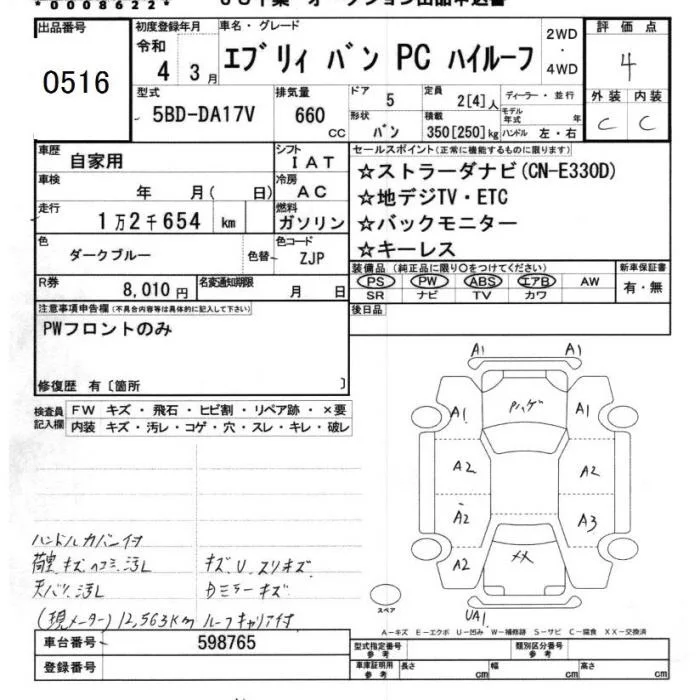 *0008622*
出品番号 初度登録年月 車名・グレード 2WD・4WD 評価点
0516 令和 4 3月 エブリィ バン PC ハイルーフ 4
型式 排気量 ドア 定員 ディーラー・並行 外装 内装
5BD-DA17V 660 CC 5 2[4]人 モデル年式 年 C C
形状 バン 積載 350[250]kg ハンドル 左・右
車歴 自家用 シフト IAT セールスポイント(正常に機能するものに限ります)
車検 年 月( 日) 冷房 AC ☆ストラーダナビ(CN-E330D)
走行 1万2千654 km 燃料 ガソリン ☆地デジTV・ETC
☆バックモニター
色 ダークブルー 色替 色コード ZJP ☆キーレス
R券 8,010円 名変通知期限 月 日 装備品(純正品に限り○をつけてください) 新車保証書
PS PW ABS エアB AW 有・無
SR ナビ TV カワ
注意事項申告欄(不具合内容等は具体的に記入して下さい) 後日品
PWフロントのみ
修復歴 有〔箇所 〕
検査員記入欄 FW キズ・飛石・ヒビ割・リペア跡・×要
内装 キズ・汚レ・コゲ・穴・スレ・キレ・破レ
A1 A1
A1 Pハゲ A1
A2 A2
A2 A3
A2 XX
UA1
スペア
ハンドルカバー付
荷室キズ、ヘコミ、汚レ キズU、スリキズ
天バリ汚レ Dミラーキズ
(現メーター)12,563Km ルーフキャリア付
A-キズ E-エクボ U-凹み W-補修跡 S-サビ C-腐食 XX-交換済
車台番号 598765 型式指定番号 参考 類別区分番号 参考
登録番号 車庫証明用 参考 長さ cm 幅 cm 高さ cm